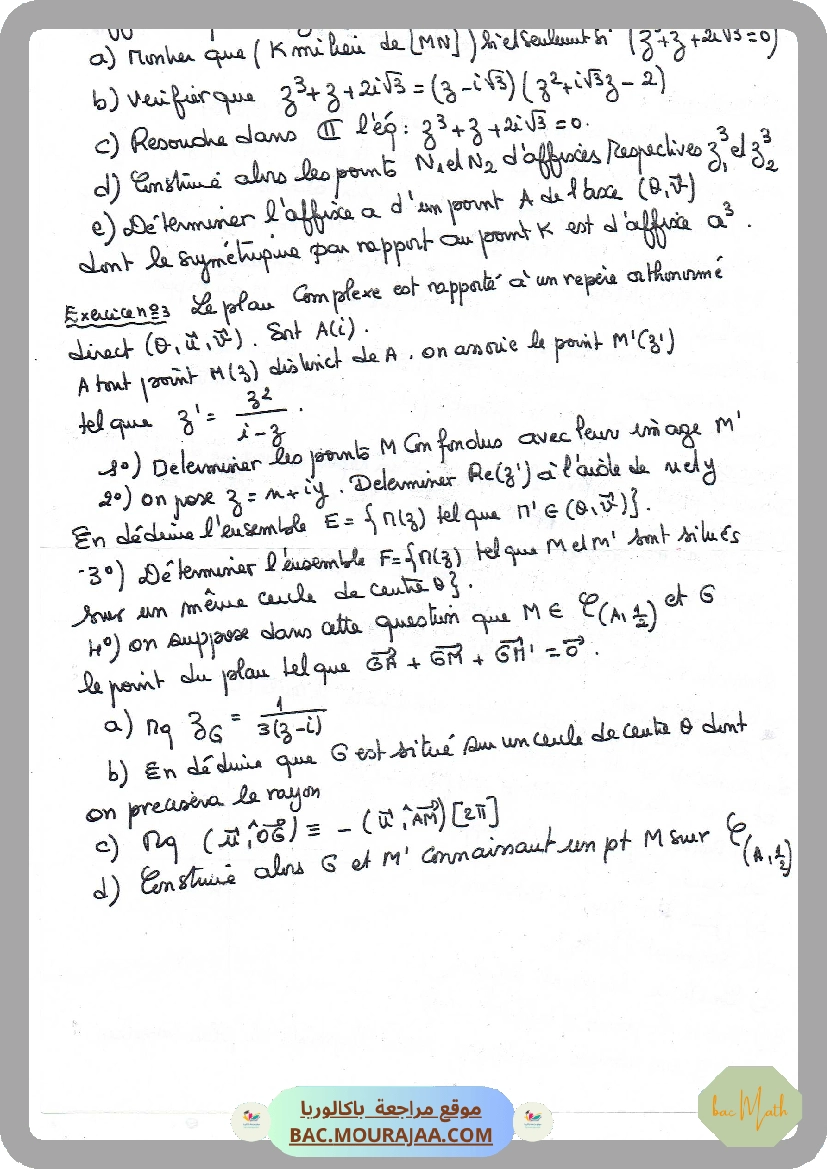 a) Montrer que (K milieu de [MN]) si et seulement si (z³+z+2i√3=0)
b) Vérifier que z³+z+2i√3=(z-i√3)(z²+i√3z-2)
c) Resoudre dans ℂ l'éq: z³+z+2i√3=0.
d) Construire alors les points N₁ et N₂ d'affixes Respectives z₁³ et z₂³
e) Déterminer l'affixe a d'un point A de l'axe (O,v⃗)
dont le symétrique par rapport au point K est d'affixe a³.
Exercice n°3 Le plan Complexe est rapporté à un repère orthonormé
direct (O,u⃗,v⃗). Soit A(i).
A tout point M(z) distinct de A. on associe le point M'(z')
tel que z' = z²/(i-z).
1°) Determiner les points M Confondus avec leur image M'
2°) on pose z=x+iy. Determiner Re(z') à l'aide de x et y
En déduire l'ensemble E={M(z) tel que M'∈(O,v⃗)}.
-3°) Déterminer l'ensemble F={M(z) tel que M et M' sont situés
sur un même cercle de centre O}.
4°) on suppose dans cette question que M∈ 𝒞(A,1/2) et G
le point du plan tel que GA⃗ + GM⃗ + GM'⃗ = 0⃗.
a) Mq z_G = 1/(3(z-i))
b) En déduire que G est situé sur un cercle de centre O dont
on precisera le rayon
c) Mq (u⃗,^OG⃗) ≡ -(u⃗,^AM⃗)[2π]
d) Construire alors G et M' connaissant un pt M sur 𝒞(A,1/2)
موقع مراجعة باكالوريا
BAC.MOURAJAA.COM
bac Math